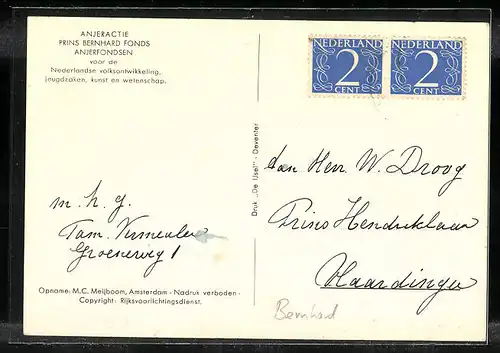 ANJERACTIE
PRINS BERNHARD FONDS
ANJERFONDSEN
voor de
Nederlandse volksontwikkeling,
jeugdzaken, kunst en wetenschap.
NEDERLAND
2
CENT
NEDERLAND
2
CENT
m. h. g.
Fam. Vermeulen
Groeneweg 1
Druk „De IJsel" - Deventer
den Heer W. Droog
Prins Hendriklaan
Vlaardingen
Opname: M.C. Meijboom, Amsterdam - Nadruk verboden -
Copyright: Rijksvoorlichtingsdienst.
Bernhard